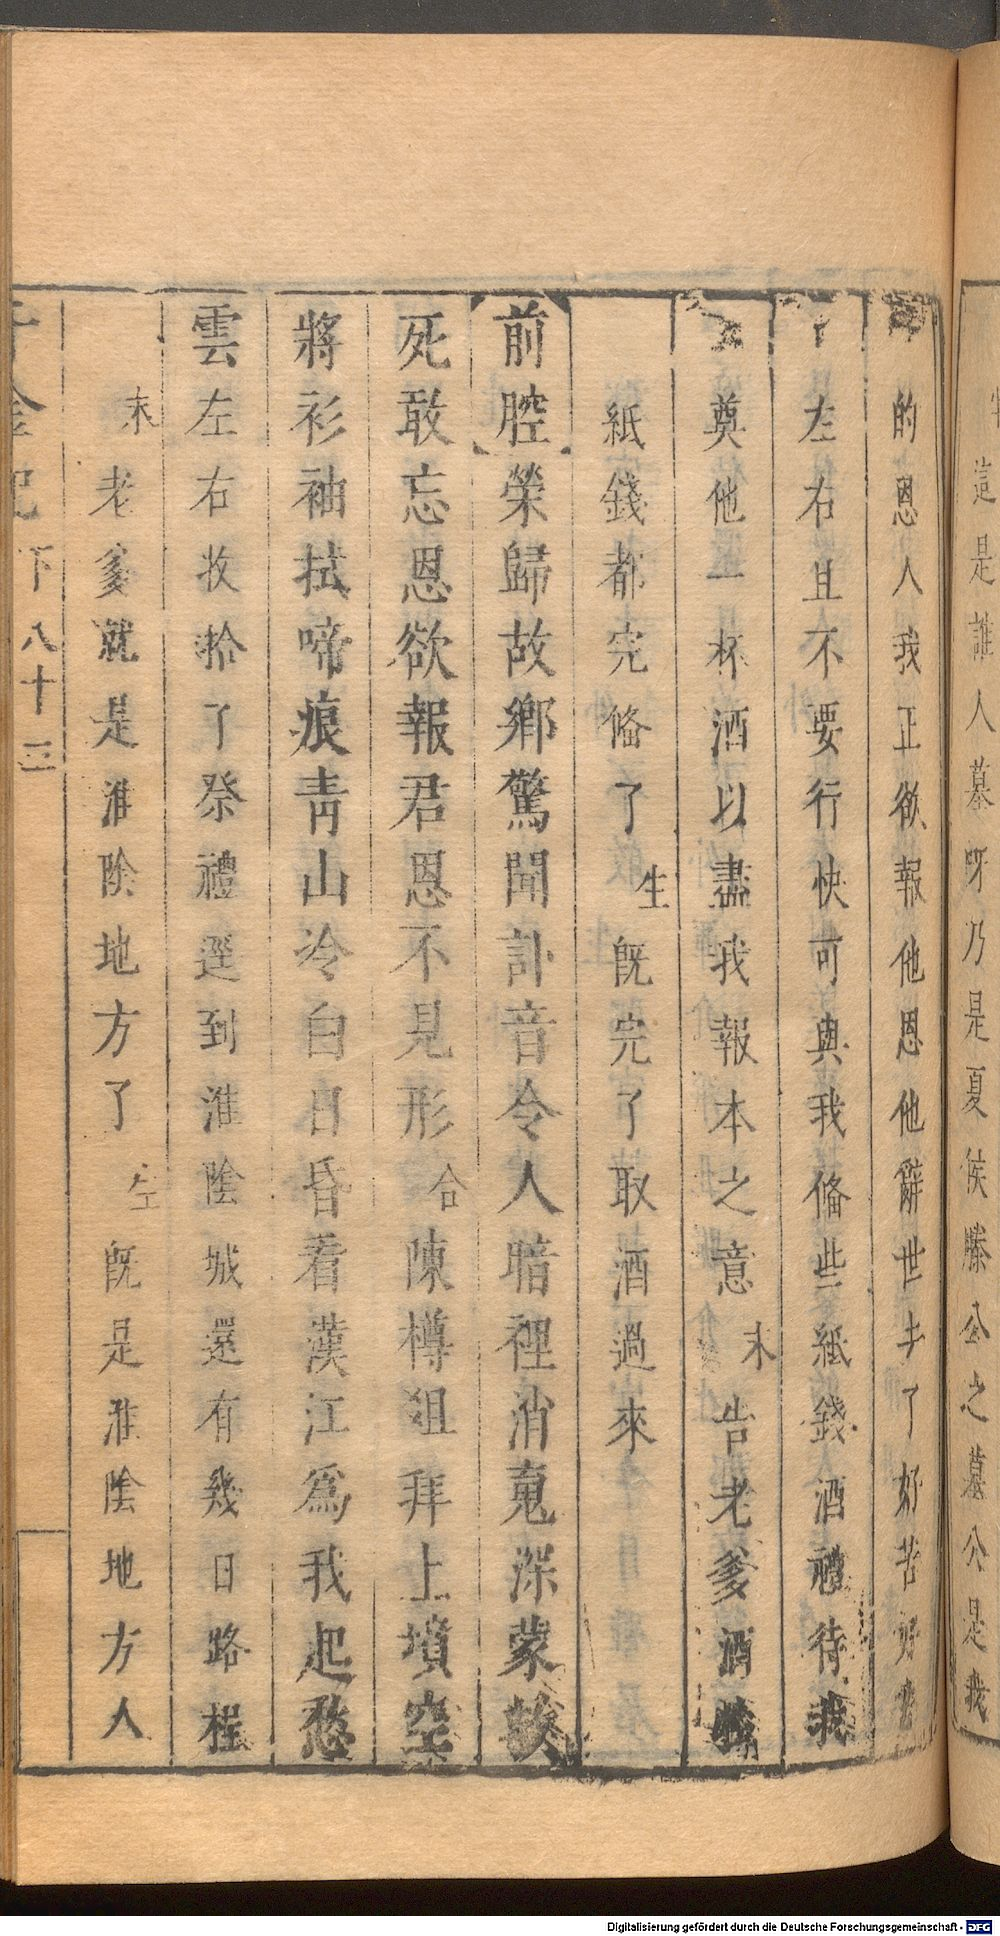 這是誰人墓呀乃是夏侯滕公之墓公是我
的恩人我正欲報他恩他辭世去了好苦好苦
左右且不要行快可與我俻些紙錢酒禮待我
奠他一杯酒以盡我報本之意末告老爹酒殽
紙錢都完俻了生旣完了取酒過來
前腔榮歸故鄉驚聞訃音令人暗裡消䰟深蒙
死敢忘恩欲報君恩不見形合陳樽俎拜上墳空
將衫袖拭啼痕靑山冷白日昏看漢江爲我起愁
雲左右收拾了祭禮遥到淮陰城還有幾日路程
末老爹就是淮陰地方了生旣是淮陰地方人
千金記下八十三
Digitalisierung gefördert durch die Deutsche Forschungsgemeinschaft - DFG